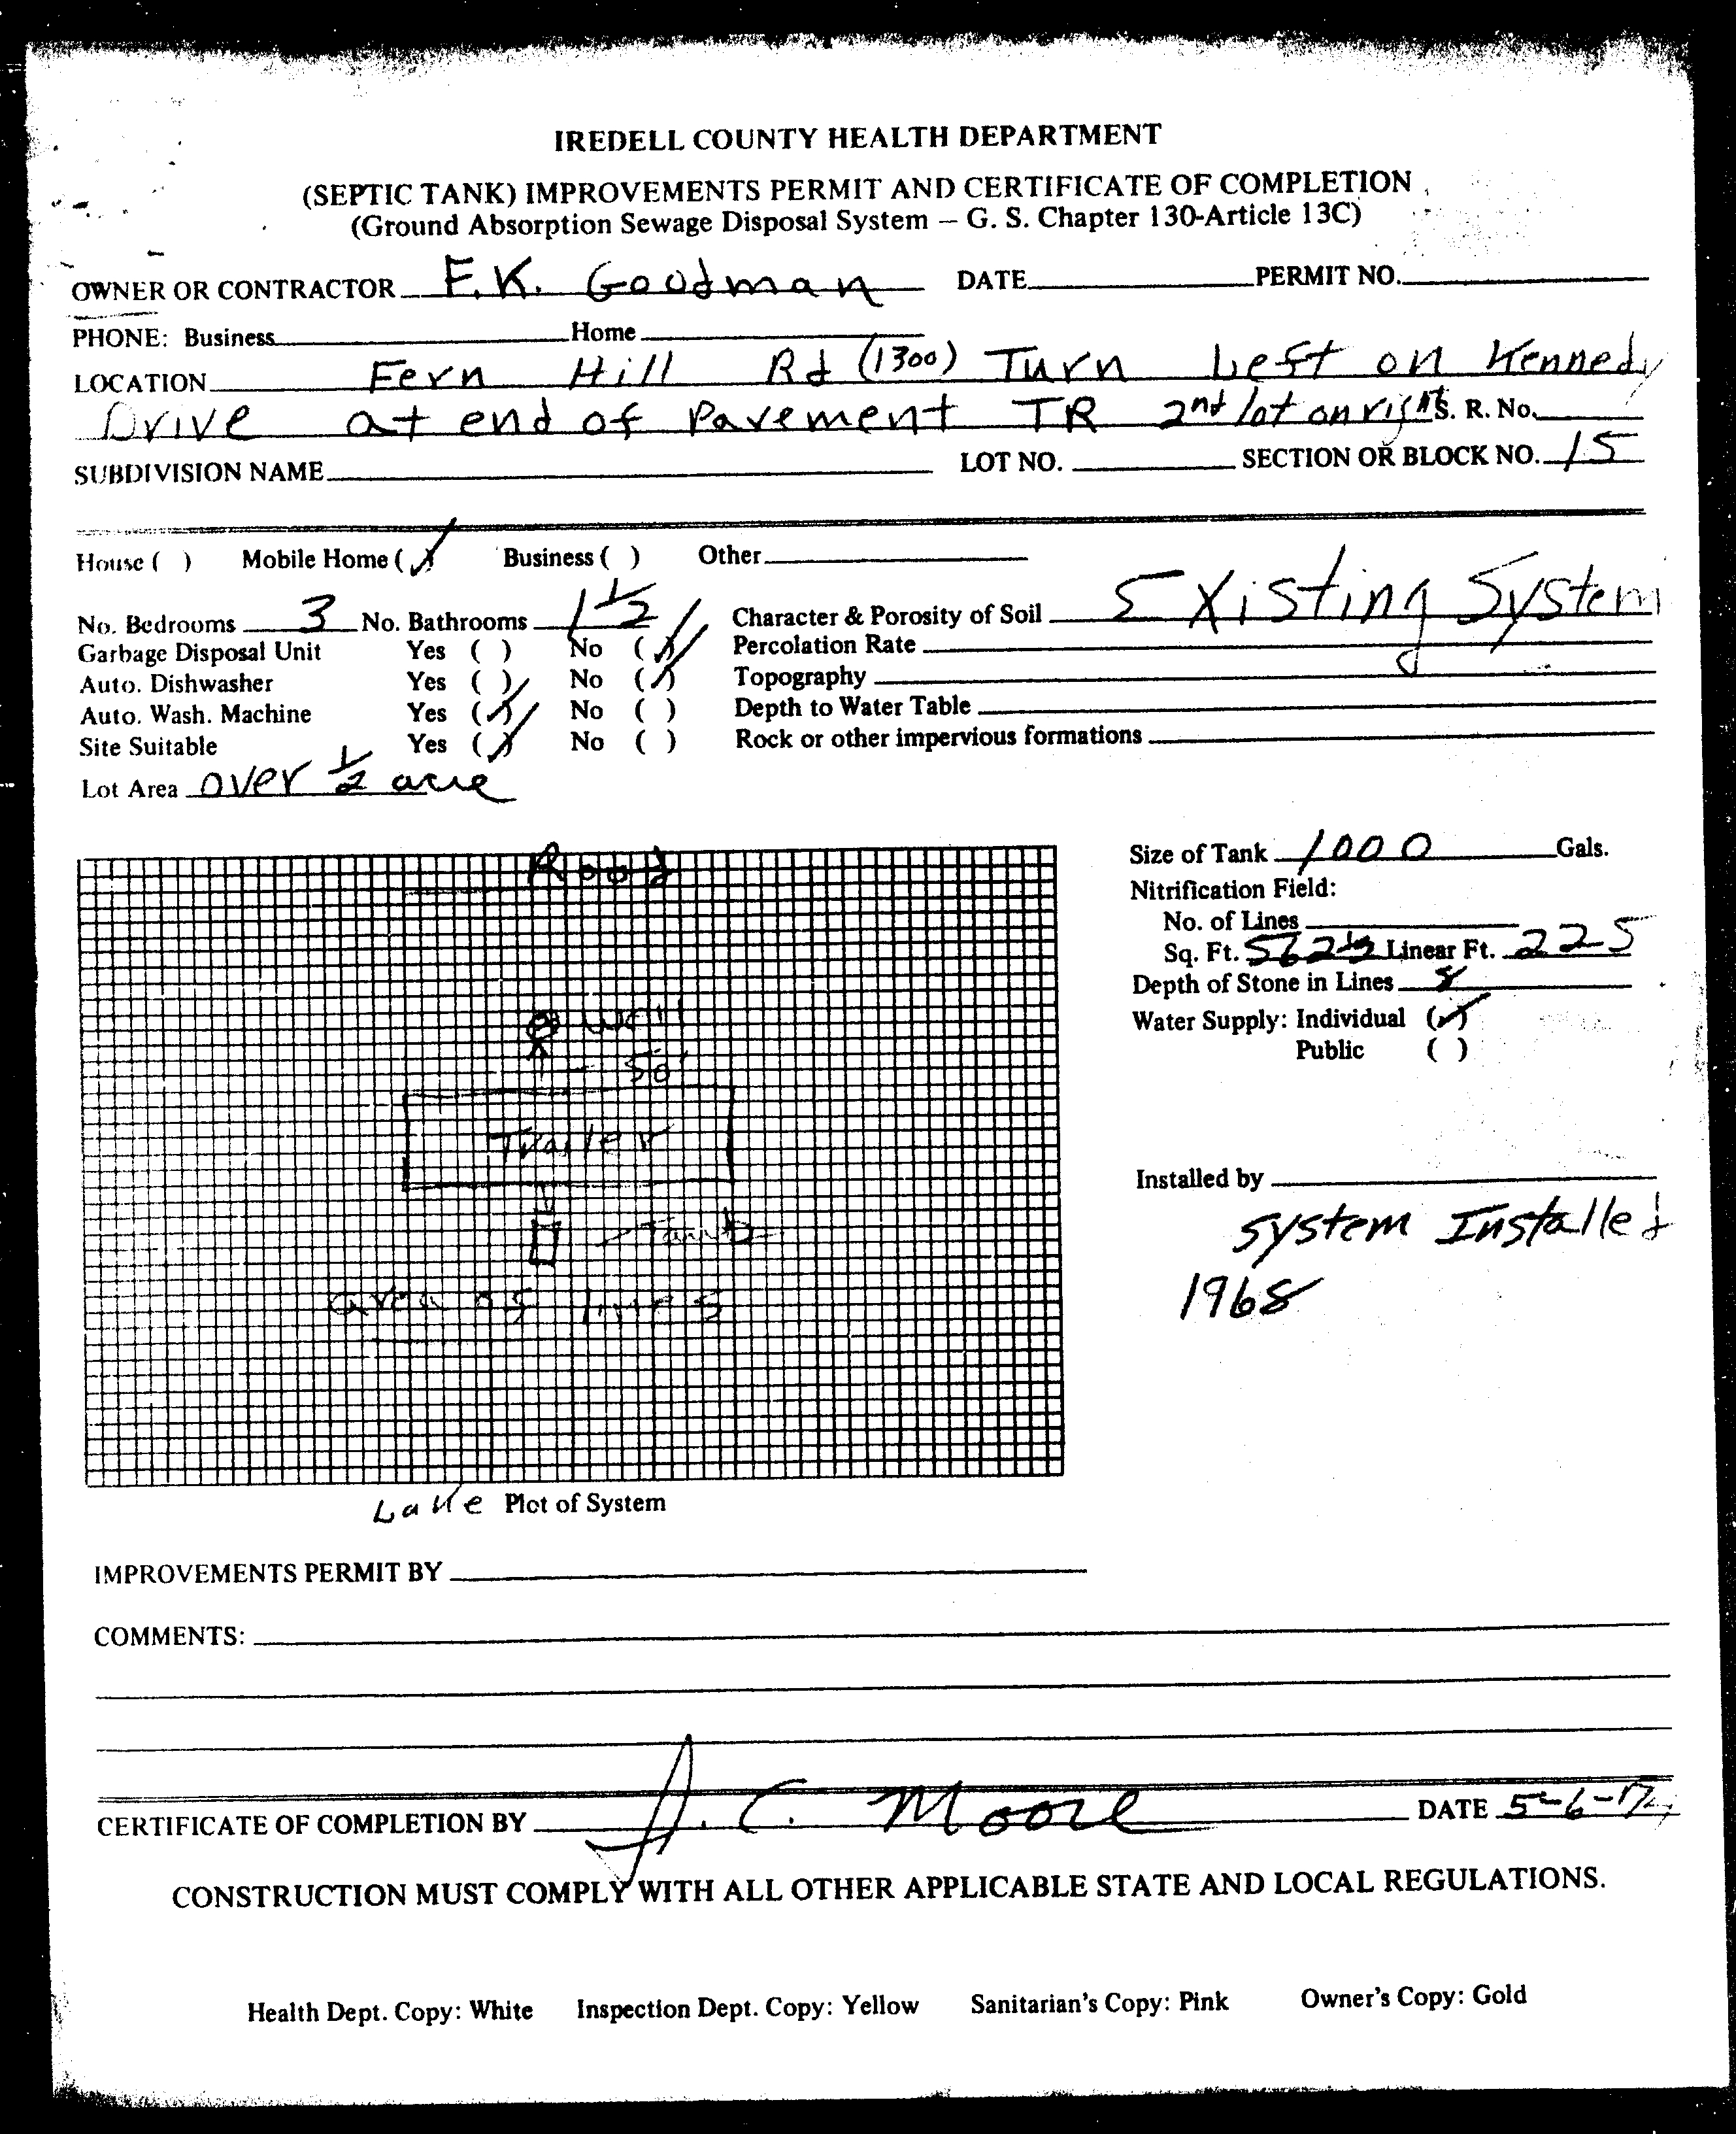 IREDELL COUNTY HEALTH DEPARTMENT
(SEPTIC TANK) IMPROVEMENTS PERMIT AND CERTIFICATE OF COMPLETION
(Ground Absorption Sewage Disposal System – G. S. Chapter 130-Article 13C)
OWNER OR CONTRACTOR F.K. Goodman DATE PERMIT NO.
PHONE: Business Home
LOCATION Fern Hill Rd (1300) Turn Left on Kennedy
Drive at end of Pavement TR 2nd lot on right S. R. No.
SUBDIVISION NAME LOT NO. SECTION OR BLOCK NO. 15
House ( ) Mobile Home (✓) Business ( ) Other
No. Bedrooms 3 No. Bathrooms 1 1/2 Character & Porosity of Soil Existing System
Garbage Disposal Unit Yes ( ) No (✓) Percolation Rate
Auto. Dishwasher Yes ( ) No (✓) Topography
Auto. Wash. Machine Yes (✓) No ( ) Depth to Water Table
Site Suitable Yes (✓) No ( ) Rock or other impervious formations
Lot Area over 1/2 acre
Road
Well
50'
Trailer
Tank
area of lines
Size of Tank 1000 Gals.
Nitrification Field:
No. of Lines
Sq. Ft. 562 1/2 Linear Ft. 225
Depth of Stone in Lines 8
Water Supply: Individual (✓)
Public ( )
Installed by
System Installed
1968
Lake Plot of System
IMPROVEMENTS PERMIT BY
COMMENTS:
CERTIFICATE OF COMPLETION BY J. C. Moore DATE 5-6-
CONSTRUCTION MUST COMPLY WITH ALL OTHER APPLICABLE STATE AND LOCAL REGULATIONS.
Health Dept. Copy: White Inspection Dept. Copy: Yellow Sanitarian's Copy: Pink Owner's Copy: Gold